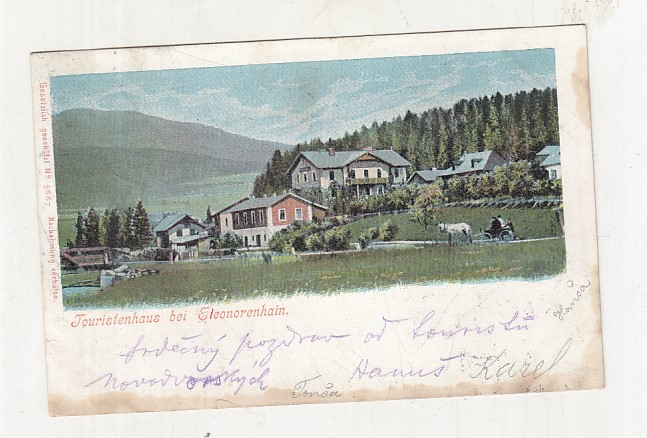 Gesetzlich geschützt No 5667 Nachahmung verboten.
Touristenhaus bei Eleonorenhain.
srdečný pozdrav od touristů
Novodvorských Hanuš Karel
Tonča
Hanča